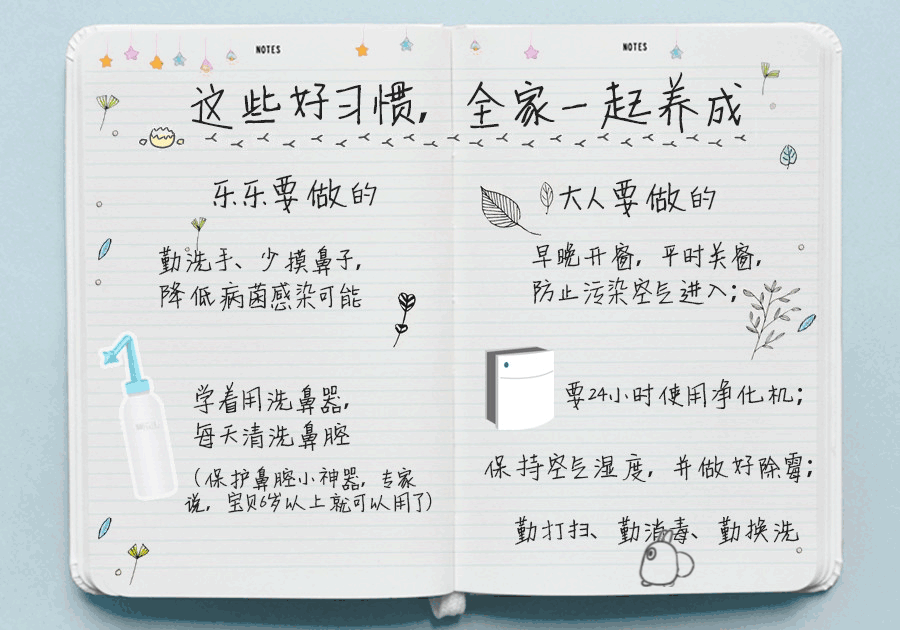 NOTES
NOTES
这些好习惯，全家一起养成
乐乐要做的
勤洗手、少摸鼻子，
降低病菌感染可能
学着用洗鼻器，
每天清洗鼻腔
（保护鼻腔小神器，专家
说，宝贝6岁以上就可以用了）
大人要做的
早晚开窗，平时关窗，
防止污染空气进入；
要24小时使用净化机；
保持空气湿度，并做好除霉；
勤打扫、勤消毒、勤换洗